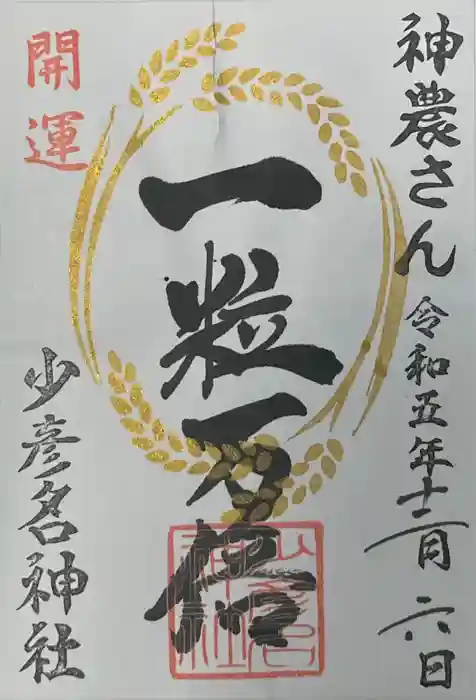 神農さん
令和五年十二月 六日
一粒万倍
開運
少彦名神社
少彦名神社